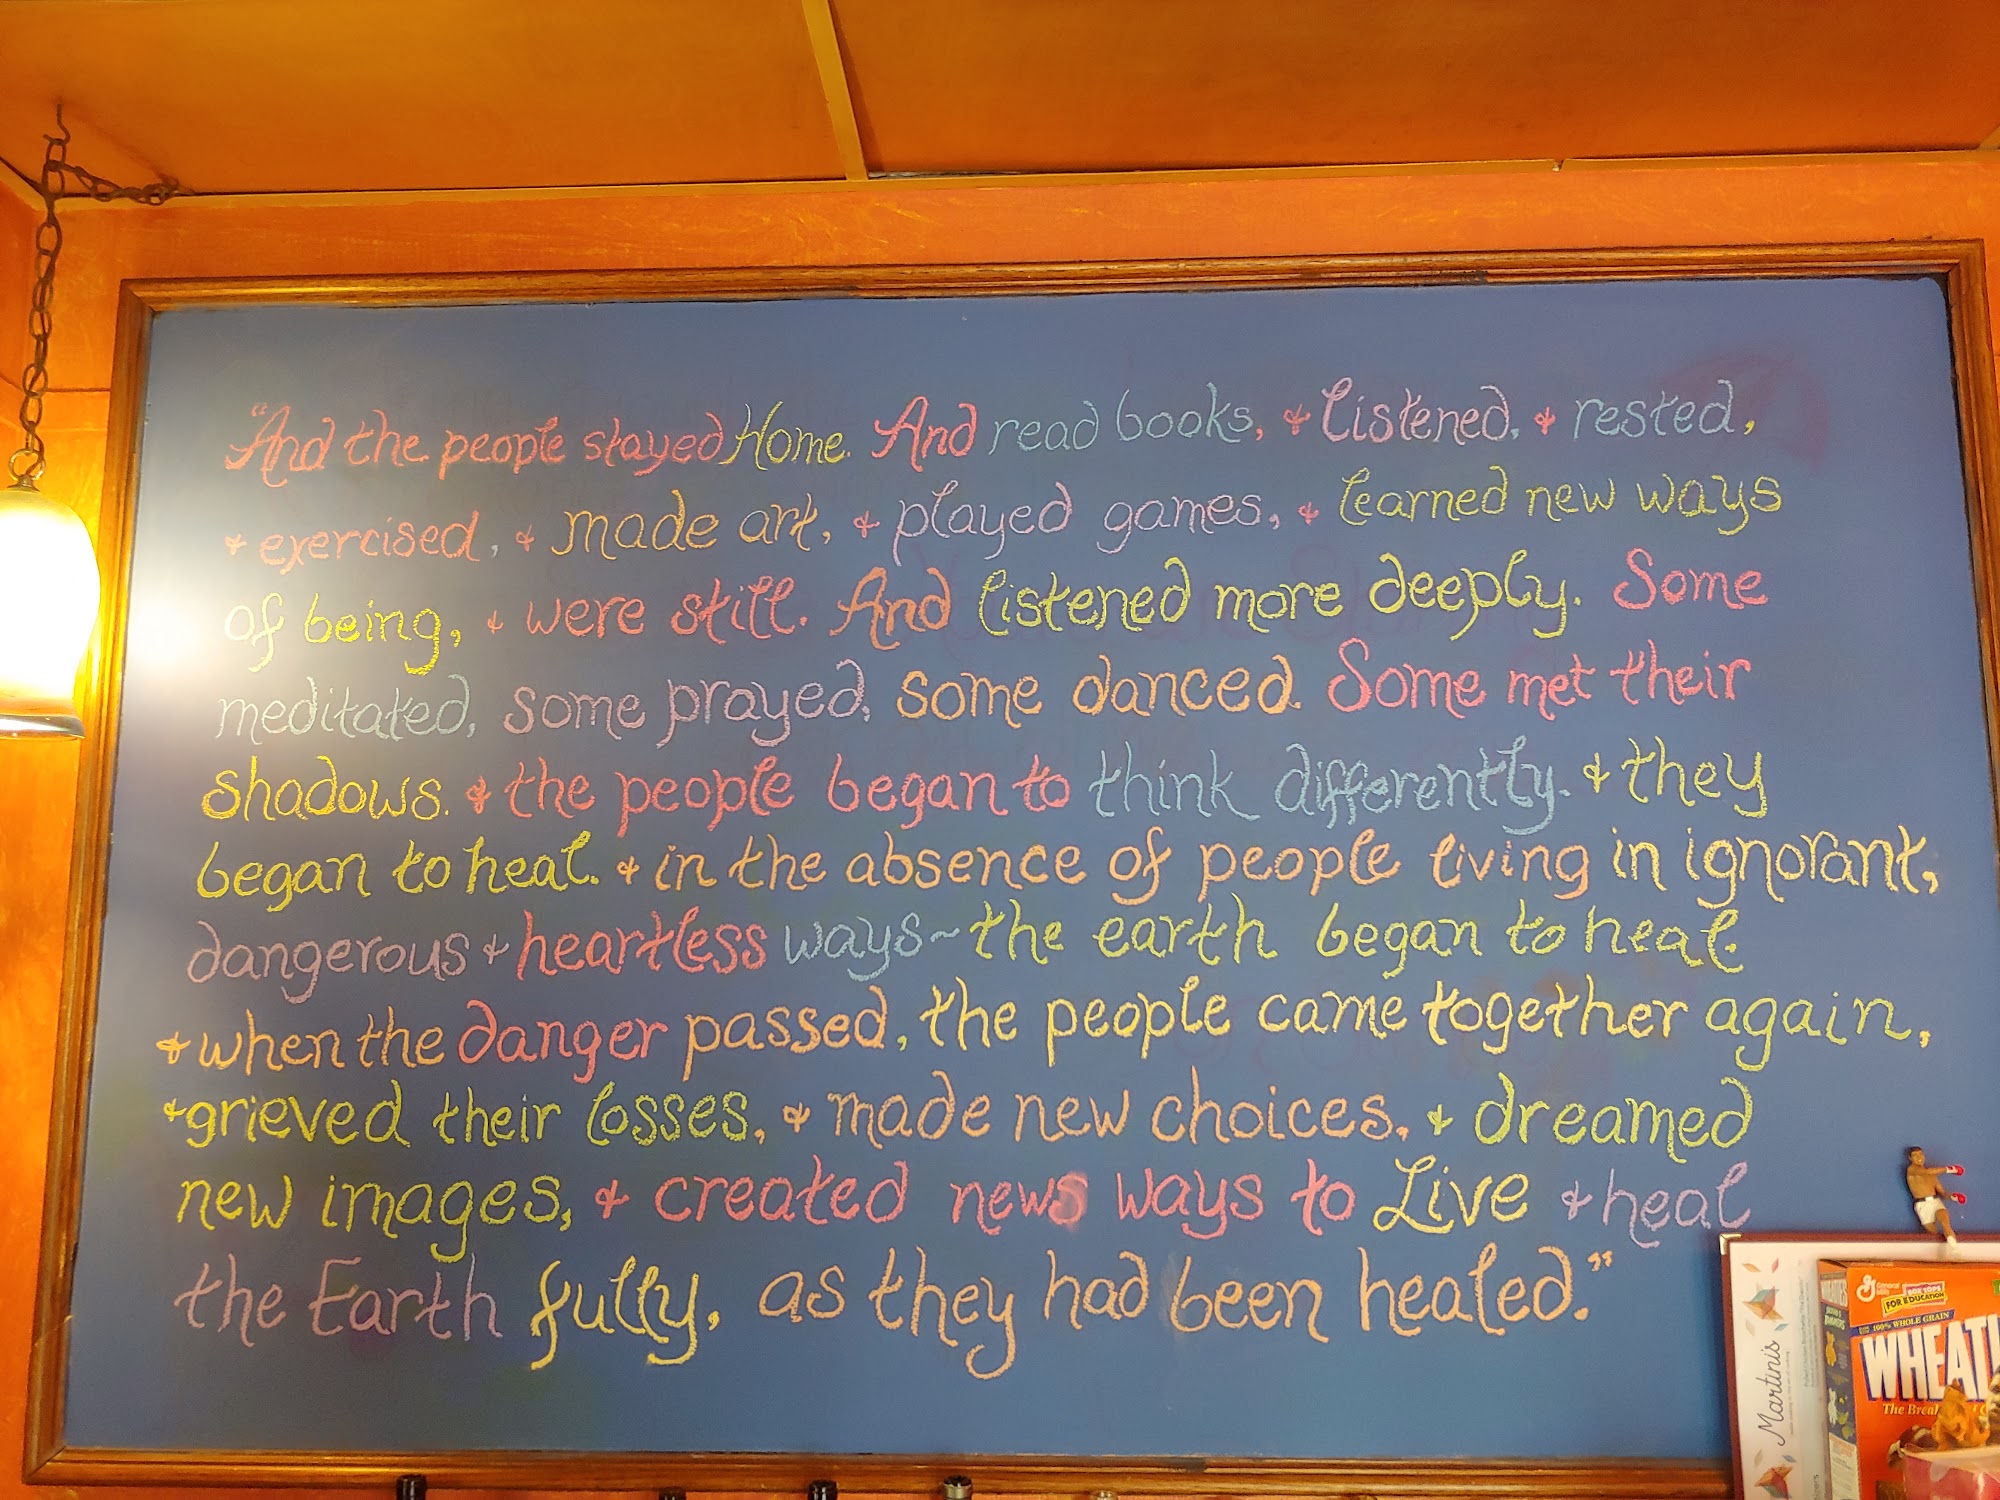 "And the people stayed Home. And read books, & Listened, & rested,
& exercised, & made art, & played games, & learned new ways
of being, & were still. And listened more deeply. Some
meditated, some prayed, some danced. Some met their
shadows. & the people began to think differently. & they
began to heal. & in the absence of people living in ignorant,
dangerous & heartless ways~the earth began to heal.
& when the danger passed, the people came together again,
& grieved their losses, & made new choices, & dreamed
new images, & created news ways to Live & heal
the Earth fully, as they had been healed."
Martinis
General Mills
BOX TOPS
FOR EDUCATION
100% WHOLE GRAIN
WHEATI
The Brea